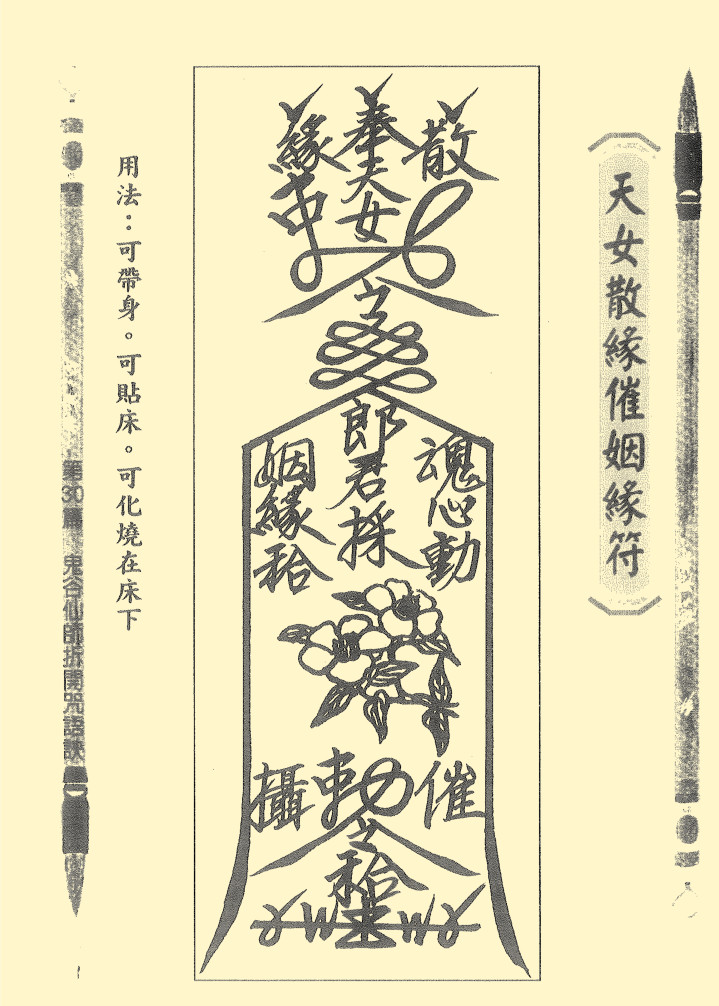 天女散緣催姻緣符
散
奉天女
緣
令
郎君採
魂心動
姻緣
催
勅令
攝
用法：可帶身。可貼床。可化燒在床下
第30篇 鬼谷仙師折開咒語訣